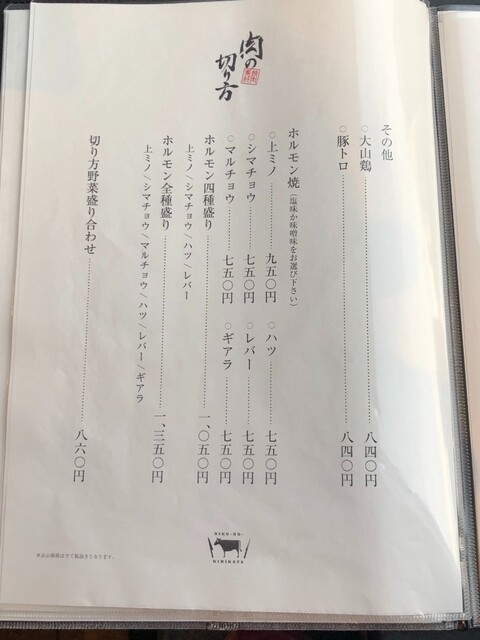 肉の
切り方
その他
○大山鶏 八四〇円
○豚トロ 八四〇円
ホルモン焼(塩味か味噌味をお選び下さい)
○上ミノ 九五〇円 ○ハツ 七五〇円
○シマチョウ 七五〇円 ○レバー 七五〇円
○マルチョウ 七五〇円 ○ギアラ 七五〇円
ホルモン四種盛り 一、〇五〇円
上ミノ/シマチョウ/ハツ/レバー
ホルモン全種盛り 一、三五〇円
上ミノ/シマチョウ/マルチョウ/ハツ/レバー/ギアラ
切り方野菜盛り合わせ 八六〇円
NIKU-NO-
KIRIKATA
※表示価格は全て税抜きとなります。